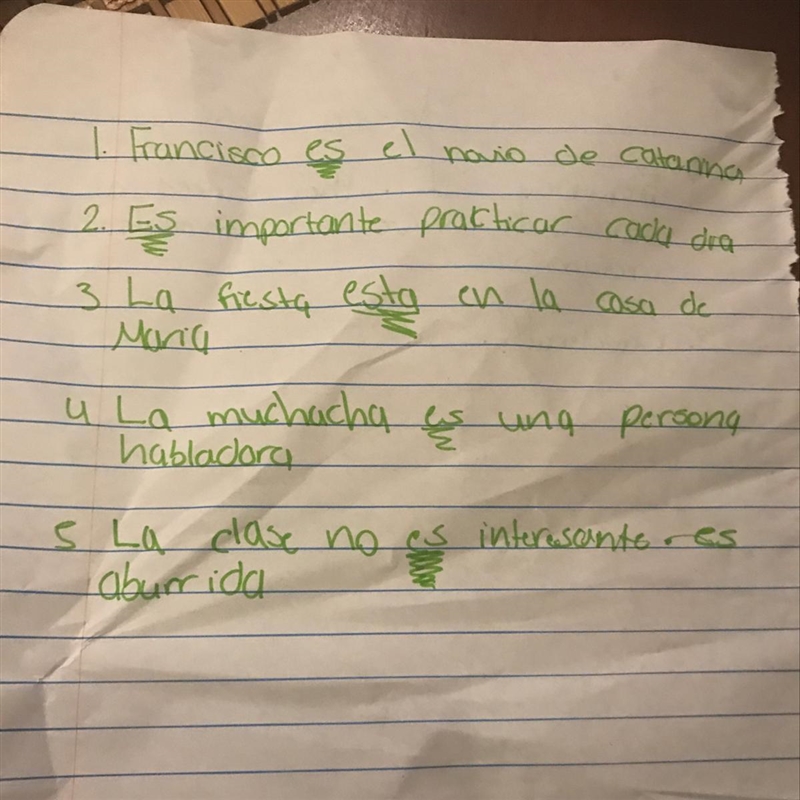 1. Francisco es el novio de catarina
2. Es importante practicar cada dia
3 La fiesta esta en la casa de
Maria
4 La muchacha es una persona
habladora
5 La clase no es interesante - es
aburrida